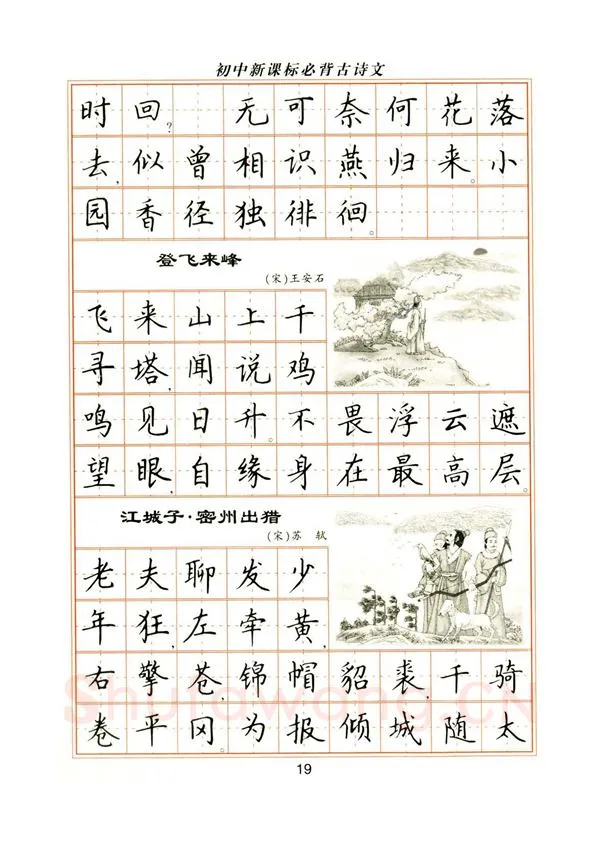 初中新课标必背古诗文
时回?　无可奈何花落
去,似曾相识燕归来。小
园香径独徘徊。
登飞来峰
(宋)王安石
飞来山上千
寻塔,闻说鸡
鸣见日升。不畏浮云遮
望眼,自缘身在最高层。
江城子·密州出猎
(宋)苏　轼
老夫聊发少
年狂,左牵黄,
右擎苍,锦帽貂裘,千骑
卷平冈。为报倾城随太
Shufawong.CN
19